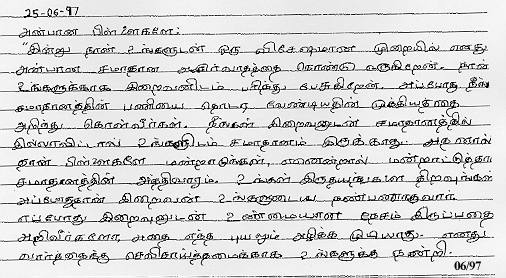 25-06-97
அன்பான பிள்ளைகளே:
"இன்று நான் உங்களுடன் ஒரு விசேஷமான முறையில் எனது
அன்பான சமாதான ஆசிர்வாதத்தை கொண்டு வருகிறேன். நான்
உங்களுக்காக இறைவனிடம் பரிந்து பேசுகிறேன். அப்போது நீங்
சமாதானத்தின் பணியை தொடர வேண்டியதின் முக்கியத்தை
அறிந்து கொள்வீர்கள். நீங்கள் இறைவனுடன் சமாதானத்தில்
இல்லாவிட்டால் உங்களிடம் சமாதானம் இருக்காது. அதனால்
தான் பிள்ளைகளே மன்றாடுங்கள், ஏனென்றால் மன்றாட்டுத்தா
சமாதானத்தின் அத்திவாரம். உங்கள் இருதயங்களை திறவுங்கள்
அப்போதுதான் இறைவன் உங்களுடைய நண்பனாகுவார்
எப்போது இறைவனுடன் உண்மையான நேசம் இருப்பதை
அறிவீர்களோ, அதை எந்த புயலும் அழிக்க முடியாது. எனது
வார்த்தைக்கு செவிசாய்த்தமைக்காக உங்களுக்கு நன்றி.
06/97